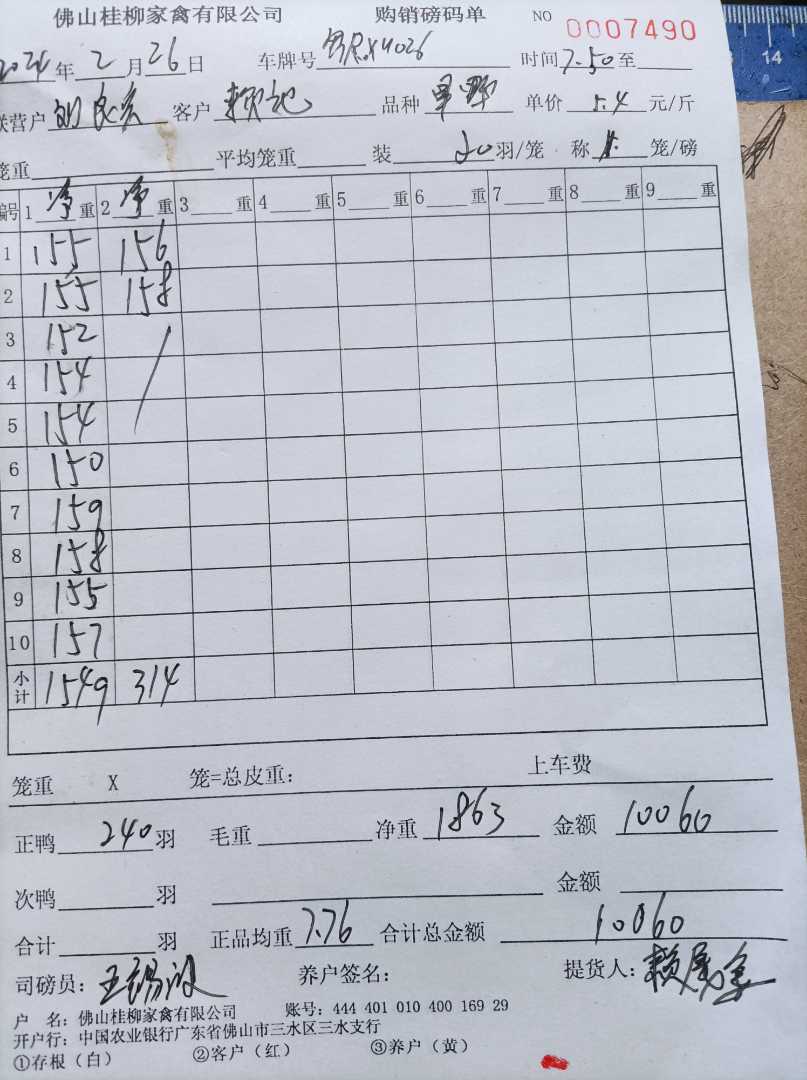 佛山桂柳家禽有限公司 购销磅码单 NO 0007490
2024年2月26日 车牌号 X4026 时间7.50至
联营户 客户 赖记 品种 单价 5.4 元/斤
笼重 平均笼重 装 20羽/笼 称 笼/磅
编号 1净重 2净重 3重 4重 5重 6重 7重 8重 9重
1 155 156
2 155 158
3 152
4 154
5 154
6 150
7 159
8 158
9 155
10 157
小计 1549 314
笼重 X 笼=总皮重: 上车费
正鸭 240羽 毛重 净重 1863 金额 10060
次鸭 羽 金额
合计 羽 正品均重 7.76 合计总金额 10060
司磅员: 王锡 养户签名: 提货人: 赖
户 名: 佛山桂柳家禽有限公司 账号: 444 401 010 400 169 29
开户行: 中国农业银行广东省佛山市三水区三水支行
①存根(白) ②客户(红) ③养户(黄)
14